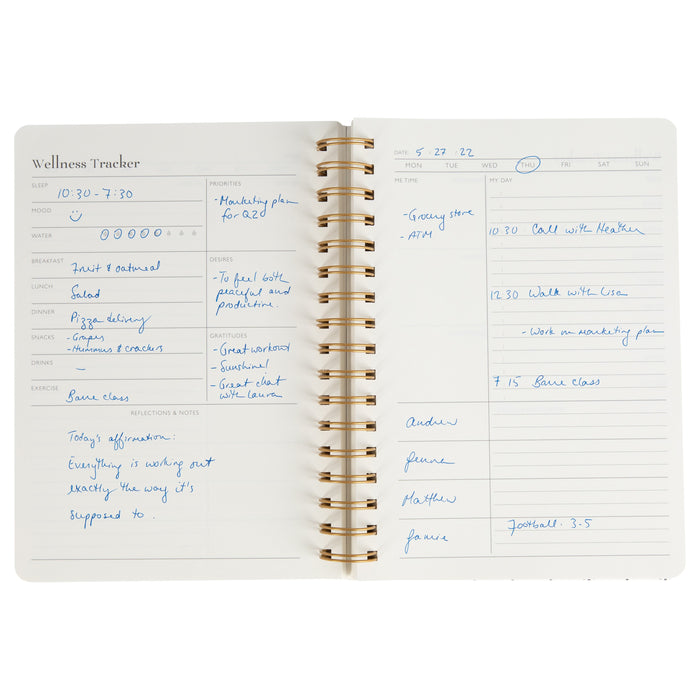 Wellness Tracker
SLEEP
10:30 - 7:30
MOOD
WATER
BREAKFAST
Fruit & oatmeal
LUNCH
Salad
DINNER
Pizza delivery
SNACKS
- Grapes
- Hummus & crackers
DRINKS
-
EXERCISE
Barre class
PRIORITIES
- Marketing plan
for Q2
DESIRES
- To feel both
peaceful and
productive.
GRATITUDES
- Great workout
- Sunshine!
- Great chat
with Laura
REFLECTIONS & NOTES
Today's affirmation:
Everything is working out
exactly the way it's
supposed to.
DATE: 5 . 27 . 22
MON TUE WED THU FRI SAT SUN
ME TIME
- Grocery store
- ATM
Andrew
Jenna
Matthew
Jamie
MY DAY
10 30 Call with Heather
12 30 Walk with Lisa
- Work on marketing plan
7 15 Barre class
Football . 3-5